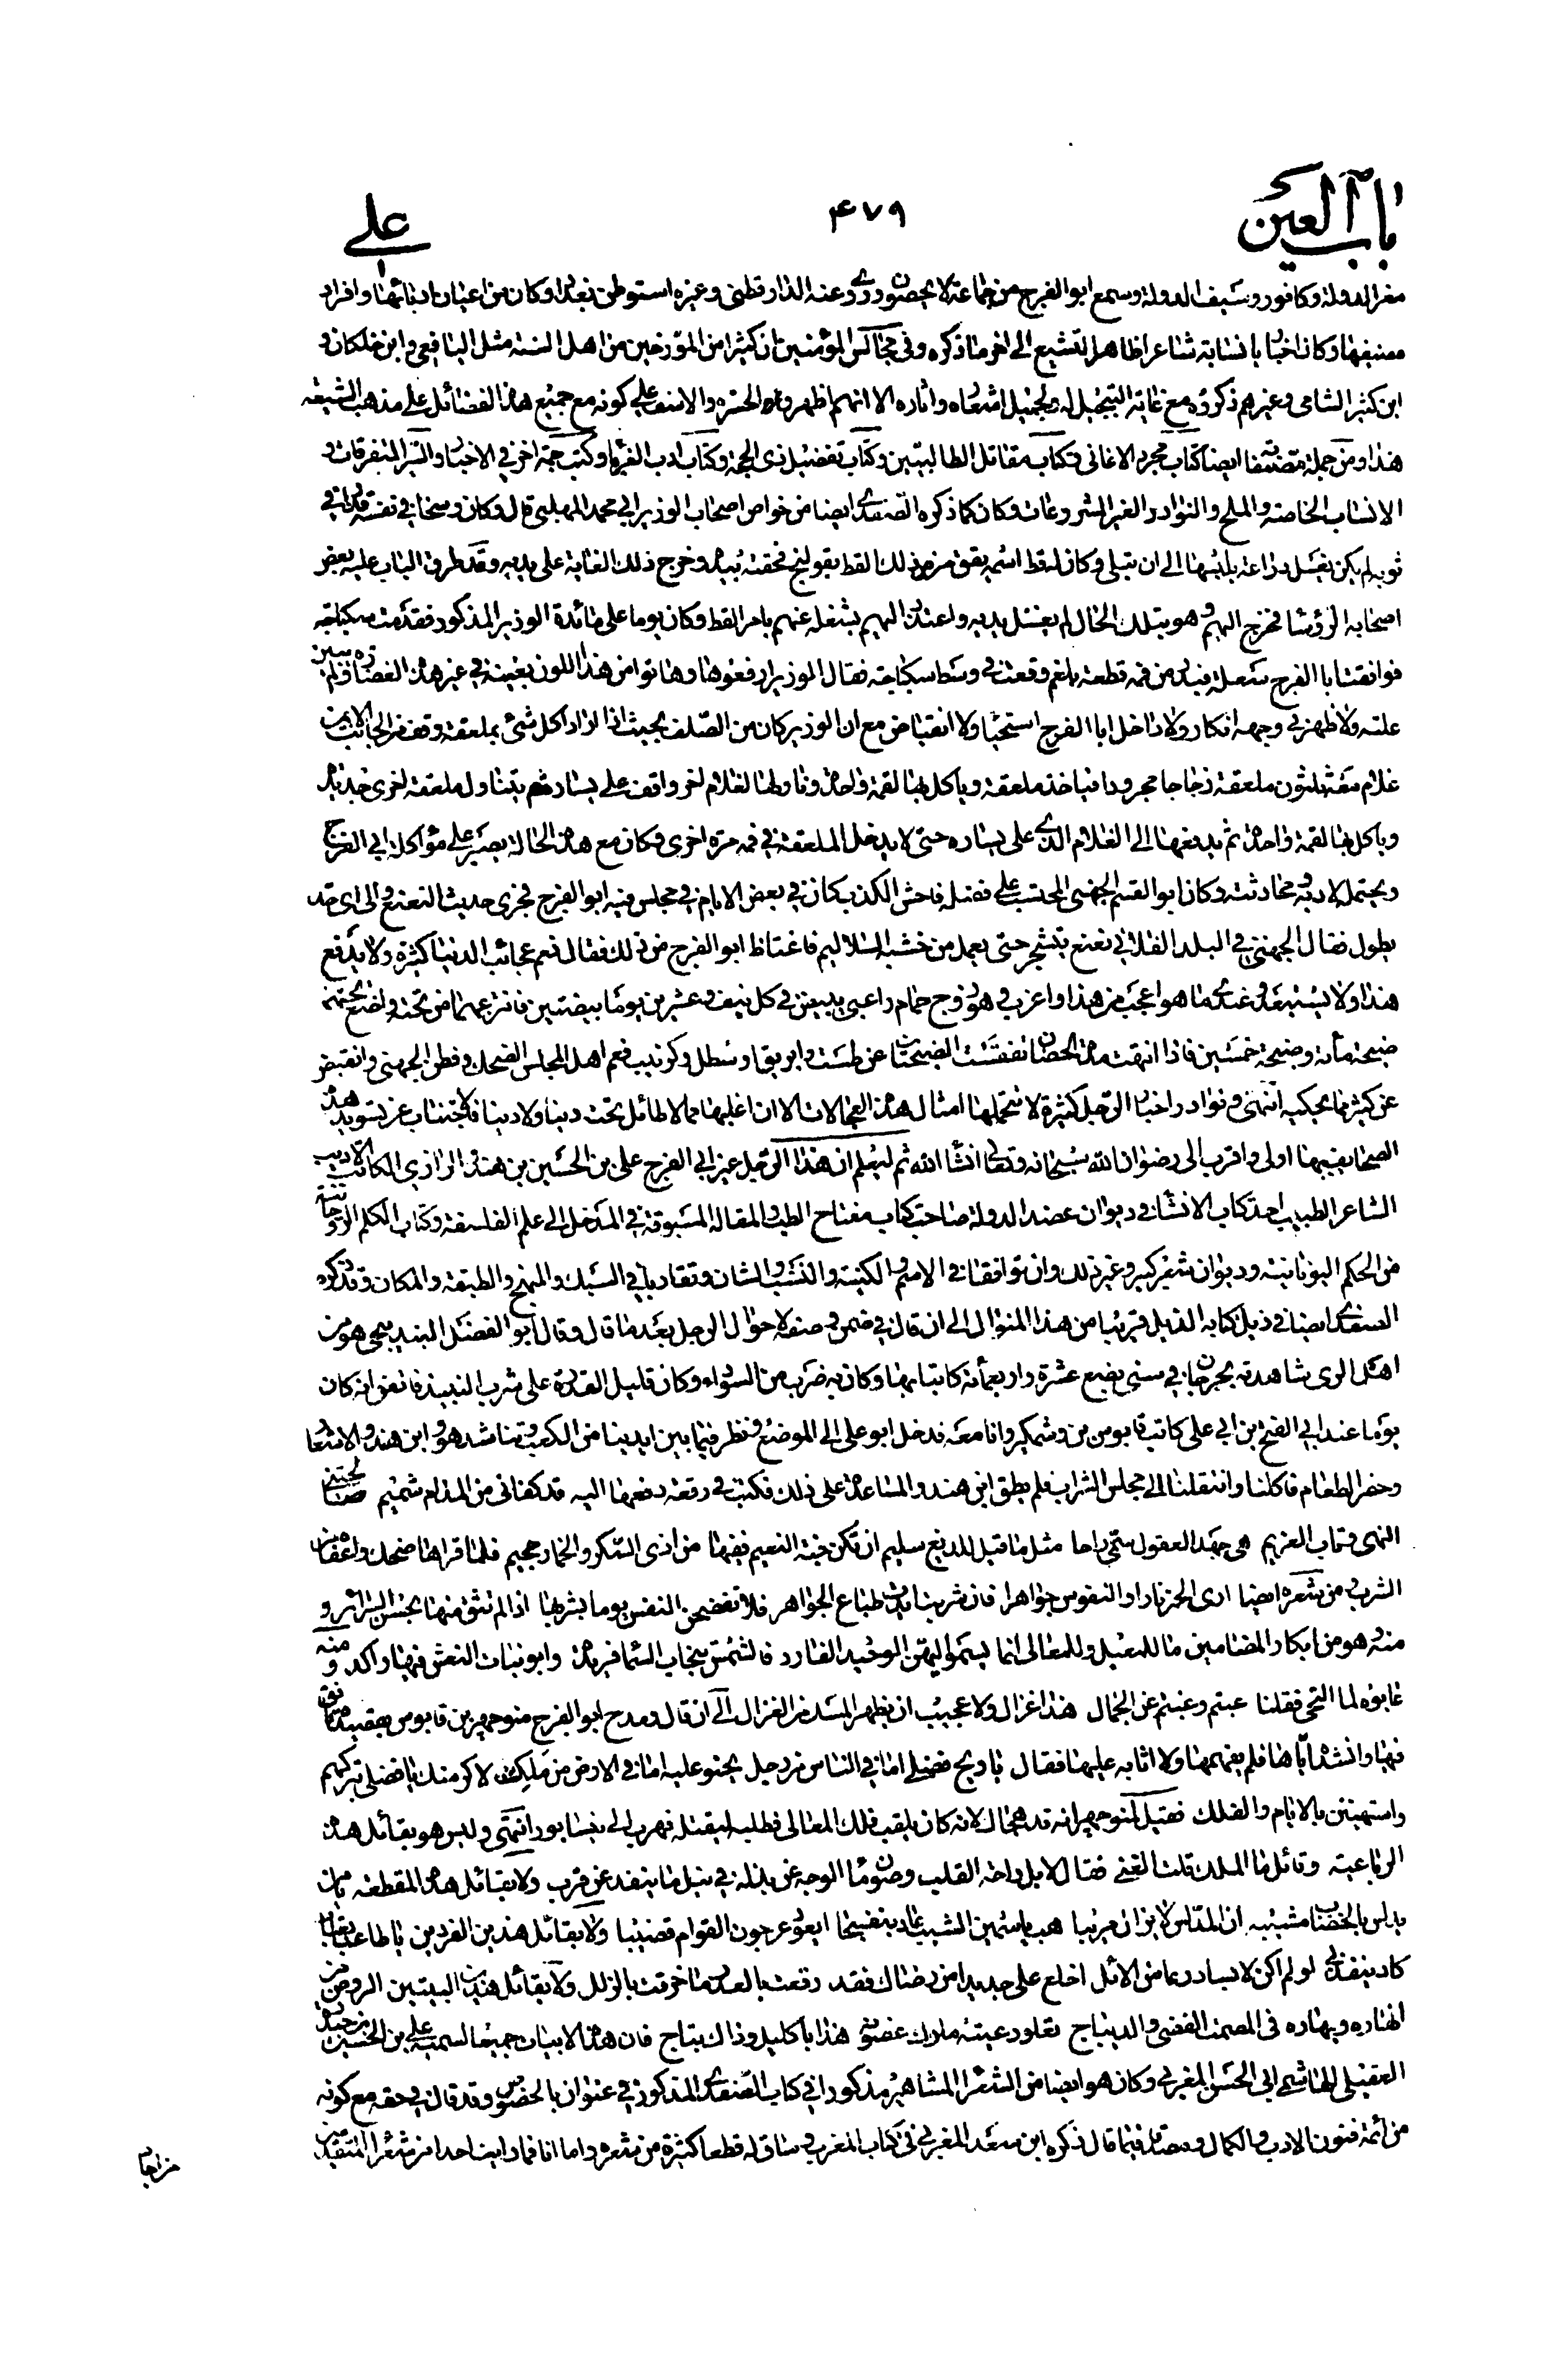 باب العين
۴۷۹
علي
معز الدولة وكافور وسيف الدولة وسمع ابو الفرج من جماعة لا يحصون وروى عنه الدارقطنى وغيره استوطن بغداد وكان من اعيان ادبائها وافراد
مصنفيها وكان اخباريا نسابة شاعرا ظاهر التشيع الى اخر ما ذكره وفى مجالس المؤمنين ان كثيرا من المورخين من اهل السنة مثل اليافعى وابن خلكان و
ابن كثير الشامى وغيرهم ذكروه مع غاية التبجيل له وبجميل اشعاره واثاره الا انهم اظهروا الحسرة والاسف على كونه مع جميع هذه الفضائل على مذهب الشيعة
هذا ومن جملة مصنفاته ايضا كتاب مجرد الاغانى وكتاب مقاتل الطالبيين وكتاب تفضيل ذى الحجة وكتاب ادب الغرباء وكتب جمة اخر فى الاخبار والسير المتفرقات و
الانساب الخاصة والملح والنوادر الغير المشروعات وكان كما ذكره الصفدى ايضا من خواص اصحاب الوزير ابى محمد المهلبى قال وكان وسخا فى نفسه قذرا فى
ثوبه لم يكن يغسل دراعة يلبسها الى ان تبلى وكان له قط اسمه يقق مرض ذلك القط بقولنج فحقنه بيده وخرج ذلك الغاية على يديه وقد طرق الباب عليه بعض
اصحابه الرؤسا فخرج اليهم وهو بتلك الحال لم يغسل يديه واعتذر اليهم بشغله عنهم بامر القط وكان يوما على مائدة الوزير المذكور فقدمت سكباجة
فوافقت ابا الفرج سعلة فبدر من فمه قطعة بلغم وقعت فى وسط سكباجة فقال الوزير ارفعوها وهاتوا من هذا اللون بعينه فى غير هذه الغضارة ولم يبين
علته ولا ظهر فى وجهه انكار ولا داخل ابا الفرج استحيا ولا انقباض مع ان الوزير كان من الصلف بحيث اذا اراد اكل شئ بملعقة وقف من الجانب الايمن
غلام معه ثلثون ملعقة زجاجا مجرودا فياخذ ملعقة وياكل بها لقمة واحدة وناولها لغلام اخر واقف على يساره ثم يتناول ملعقة اخرى جديدة
وياكل بها لقمة واحدة ثم يدفعها الى الغلام الذى على يساره حتى لا يدخل الملعقة فى فمه مرة اخرى فكان مع هذه الحالة يصبر على مؤاكلة ابى الفرج
ويحتمله لادبه ومحادثته وكان ابو القسم الجهنى المحتسب على فضله فاحش الكذب كان فى بعض الايام فى مجلس فيه ابو الفرج فجرى حديث النعنع والى اى حد
يطول فقال الجهنى فى البلد الفلانى نعنع يتشجر حتى يعمل من خشبه السلاليم فاغتاظ ابو الفرج من ذلك فقال نعم عجائب الدنيا كثيرة ولا يدفع
هذا ولا يستبعد وعندى ما هو اعجب من هذا واغرب وهو زوج حمام راعبى يبيض فى كل نيف وعشرين يوما بيضتين فانتزعهما من تحته واضع تحتهم
صنجة مأة وصنجة خمسين فاذا انتهت مدة الحضان تفقست الصنجتان عن طست وابريق او سطل وكرنيب فعم اهل المجلس الضحك وفطن الجهنى وانقبض
عن كثير مما يحكيه انتهى ونوادر اخبار الرجل كثيرة لا تتحملها امثال هذه العجالات الا ان اغلبها مما لا طائل تحت دينا ولا دنيا فلاجتناب عن تسويد هذه
الصحايف بها اولى واقرب الى رضوان الله سبحانه وتعالى انشا الله ثم ليعلم ان هذا الرجل غير ابى الفرج على بن الحسين بن هندو الرازى الكاتب الاديب
الشاعر الطبيب احد كتاب الانشا فى ديوان عضد الدولة صاحب كتاب مفتاح الطب والمقالة المسبوقة فى المدخل الى علم الفلسفة وكتاب الكلم الروحانية
من الحكم اليونانية وديوان شعر كبير وغير ذلك وان توافقا فى الاسم والكنية والنسب والشان وتقاربا فى السبك والمنهج والطبقة والمكان وقد ذكره
الصفدى ايضا فى ذيل كتابه الذيل قريبا من هذا المنوال الى ان قال فى ضمن صفة لاحوال الرجل بعد ما قال وقال ابو الفضل البنديجى هو من
اهل الرى شاهدته بجرجان فى سنى بضع عشرة واربعمأة كاتبا بها وكان به ضرب من السوداء وكان قليل القدرة على شرب النبيذ فاتفق انه كان
يوما عند ابى الفتح ابن ابى على كاتب قابوس بن وشمكير وانا معه فدخل ابو على الى الموضع ونظر فيما بين ايدينا من الكتب وتناشد هو وابن هندو الاشعار
وحضر الطعام فاكلنا وانتقلنا الى مجلس الشراب فلم يطق ابن هندو المساعدة على ذلك فكتب فى رقعة دفعها اليه قد كفانى من المدام شميم صالحتنى
النهى وتاب الغريم هى جهد العقول سمى راحا مثل ما قيل للديغ سليم ان تكن جنة النعيم ففيها من اذى السكر والخمار جحيم فلما قراها ضحك واعفاه من
الشرب ومن شعره ايضا ارى الخمر نارا والنفوس جواهرا فان شربت ابدت طباع الجواهر فلا تفضحن النفس يوما بشربها اذا لم تثق منها بحسن السرائر و
منه وهو من ابكار المضامين ما للمعيل وللمعالى انما يسمو اليهن الوحيد الفارد فالشمس تنجاب السما فريدة وابو بنات النعش فيها راكد ومنه
عابوه لما التحى فقلنا عبتم وغبتم عن الجمال هذا غزال ولا عجيب ان يظهر المسك من الغزال الى ان قال ومدح ابو الفرج منوچهر بن قابوس بقصيدة تانق
فيها وانشده اياها فلم يفهمها ولا اثابه عليها فقال يا ويح فضلى اما فى الناس من رجل يحنو عليه اما فى الارض من ملك لاكرمنك يا فضلى بتركهم
واستهينن بالايام والفلك فقيل لمنوچهر انه قد هجاك لانه كان يلقب فلك المعالى فطلبه ليقتله فهرب الى نيسابور انتهى وليس هو بقائل هذه
الرباعية وقائل ما الملك قلت الغنى فقال لا بل راحة القلب وصون ما الوجه عن بذله فى نيل ما ينفد عن قرب ولا بقائل هذه المقطعة يا من
يدلس بالخضاب مشيبه ان المدلس لا يزال مريبا هب ياسمين الشيب عاد بنفسجا ايعود عرجون القوام قضيبا ولا بقائل هذين الفردين
كاد ينفد لو لم اكن لابسا درعا من الامل اخلع على جديدا من رضاك فقد رقعت بالعذر ما خرقت بالزلل ولا بقائل هذين البيتين الروض من
انهاره وبهاره فى المصمت الفضى والديباج تعلو رعيته ملوك غصونه هذا باكليل وذاك بتاج فان هذه الابيات جميعا لسميه على بن الحسين بن حيدرة
العقيلى الهاشمى ابى الحسن المغربى وكان هو ايضا من الشعرا المشاهير مذكورا فى كتاب الصفدى المذكور فى عنوان بالخصوص وقد قال فى حقه مع كونه
من ائمة فنون الادب والكمال وقد قال ذكره ابن سعد المغربى فى كتاب المغرب وساق له قطعا كثيرة من شعره واما انا فما رايت احدا من شعرا المتقدمين
من اجاد